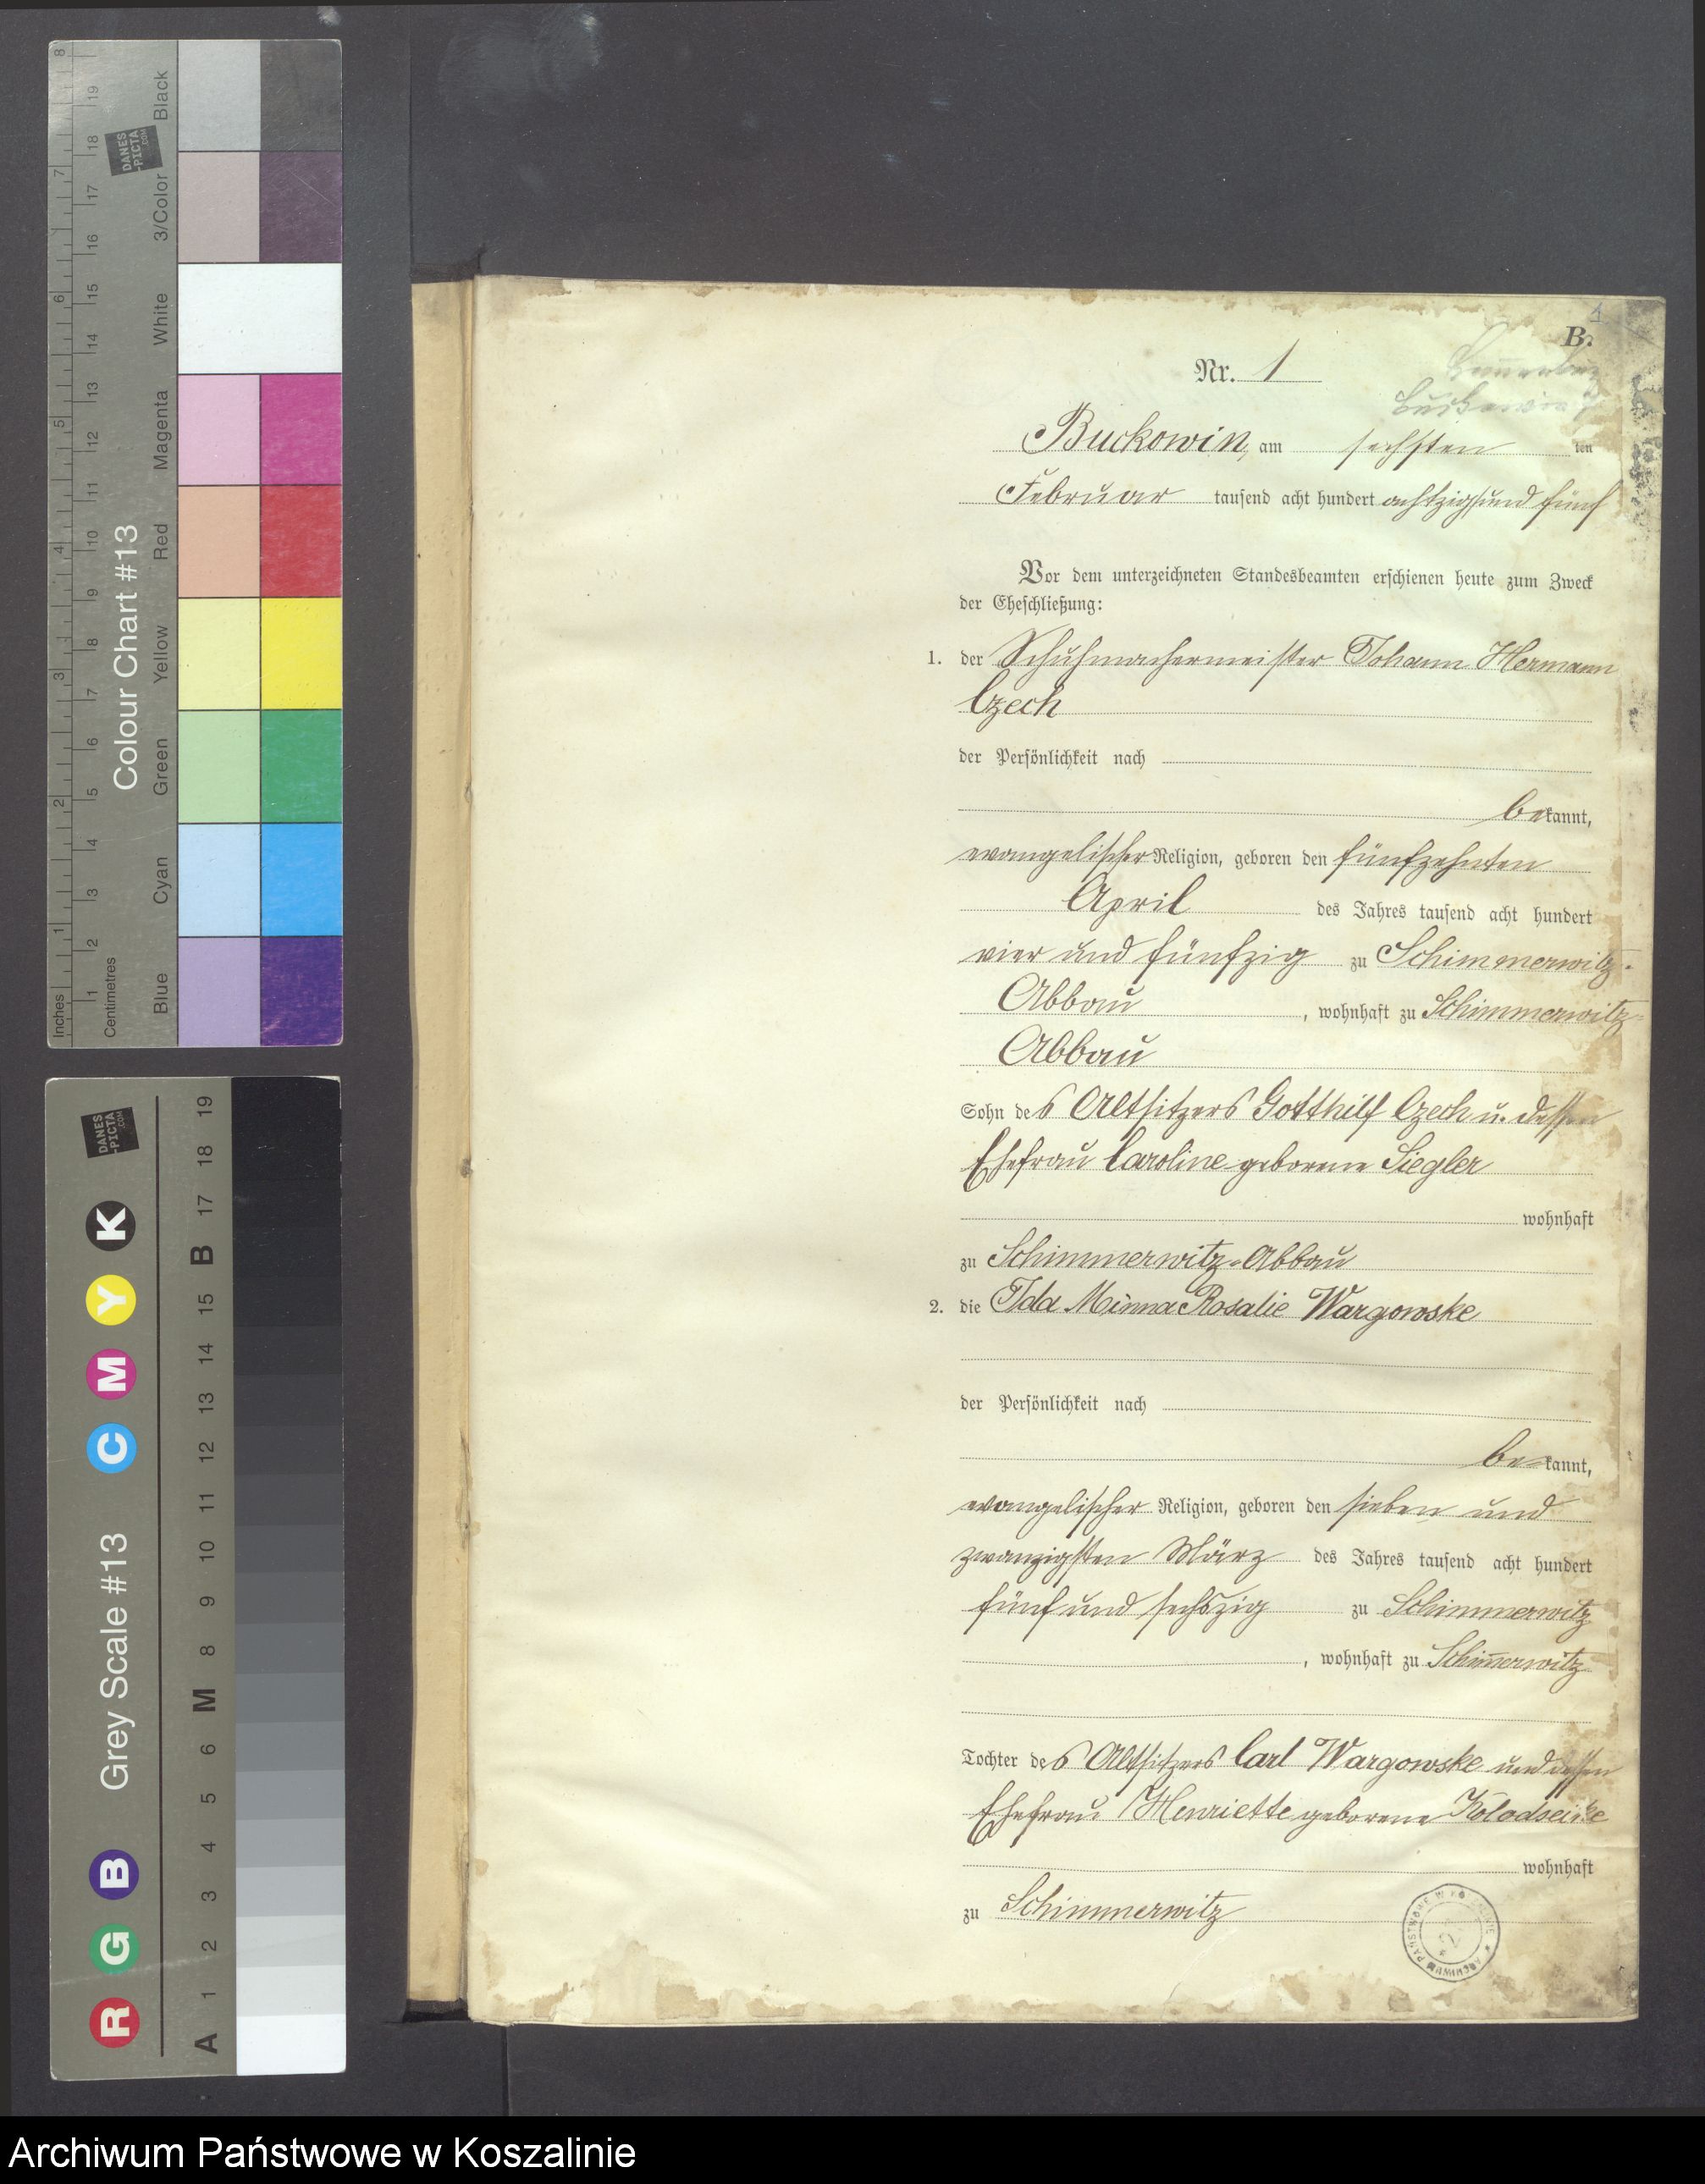 B.
1
Nr. 1
Buckowin, am sechsten ten
Februar tausend acht hundert achtzig und fünf
Vor dem unterzeichneten Standesbeamten erschienen heute zum Zweck
der Eheschließung:
1. der Schuhmachermeister Johann Hermann
Czech
der Persönlichkeit nach
bekannt,
evangelischer Religion, geboren den fünfzehnten
April des Jahres tausend acht hundert
vier und fünfzig zu Schimmerwitz-
Abbau, wohnhaft zu Schimmerwitz-
Abbau
Sohn des Altsitzers Gotthilf Czech u. dessen
Ehefrau Caroline geborene Siegler
wohnhaft
zu Schimmerwitz-Abbau
2. die Ida Minna Rosalie Wargowske
der Persönlichkeit nach
be-kannt,
evangelischer Religion, geboren den sieben und
zwanzigsten März des Jahres tausend acht hundert
fünf und sechszig zu Schimmerwitz
, wohnhaft zu Schim̄erwitz
Tochter des Altsitzers Carl Wargowske und dessen
Ehefrau Henriette geborene Kolodseike
wohnhaft
zu Schimmerwitz
ARCHIWUM PAŃSTWOWE W KOSZALINIE
Inches
Centimetres
Colour Chart #13
Blue Cyan Green Yellow Red Magenta White 3/Color Black
1 2 3 4 5 6 7 8
1 2 3 4 5 6 7 8 9 10 11 12 13 14 15 16 17 18 19
DANES
-PICTA
.COM
Grey Scale #13
R G B C M Y K
A 1 2 3 4 5 6 M 8 9 10 11 12 13 14 15 B 17 18 19
DANES
-PICTA
.COM
Archiwum Państwowe w Koszalinie